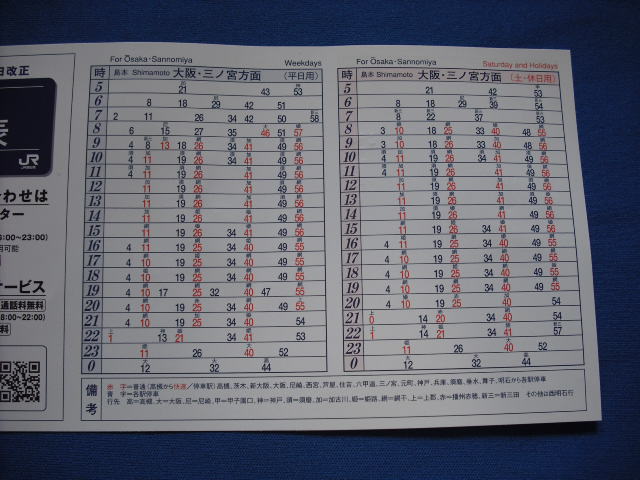 日改正
表
JR
わせは
ター
6:00~23:00)
用可能
サービス
通話料無料
8:00~22:00)
料
For Ōsaka・Sannomiya Weekdays
時 島本 Shimamoto 大阪・三ノ宮方面 (平日用)
5 21 43 53
6 8 18 29 42 51
7 2 11 26 34 42 50 58
8 6 15 27 35 46 51 57
9 4 8 13 18 26 34 41 49 56
10 4 11 19 26 34 41 49 56
11 4 11 19 26 41 49 56
12 11 19 26 41 49 56
13 11 19 26 41 49 56
14 11 19 26 41 49 56
15 11 19 26 34 41 49 56
16 4 11 19 25 34 40 49 55
17 4 10 19 25 34 40 49 55
18 4 10 19 25 34 40 49 55
19 4 10 17 25 32 40 47 55
20 4 10 19 25 34 40 48 55
21 4 10 19 25 34 40 54
22 1 13 21 34 41 54
23 11 26 40 52
0 12 32 44
For Ōsaka・Sannomiya Saturday and Holidays
時 島本 Shimamoto 大阪・三ノ宮方面 (土・休日用)
5 21 42 53
6 8 18 29 39 54
7 8 22 37 53
8 3 10 18 25 33 40 48 56
9 3 10 18 26 33 41 48 56
10 4 11 19 26 34 41 49 56
11 4 11 19 26 41 49 56
12 11 19 26 41 49 56
13 11 19 26 41 49 56
14 11 19 26 41 49 56
15 11 19 26 34 41 49 56
16 4 11 19 25 34 40 49 55
17 4 10 19 25 34 40 49 55
18 4 10 19 25 34 40 49 55
19 4 10 19 25 34 40 49 55
20 4 10 19 25 34 40 54
21 0 14 20 34 40 54
22 1 14 21 34 41 57
23 11 26 40 53
0 12 32 44
備考
赤 字=普通(高槻から快速/停車駅)高槻、茨木、新大阪、大阪、尼崎、西宮、芦屋、住吉、六甲道、三ノ宮、元町、神戸、兵庫、須磨、垂水、舞子、明石から各駅停車
青 字=各駅停車
行先 高=高槻、大=大阪、尼=尼崎、甲=甲子園口、神=神戸、須=須磨、加=加古川、姫=姫路、網=網干、上=上郡、赤=播州赤穂、新三=新三田 その他は西明石行